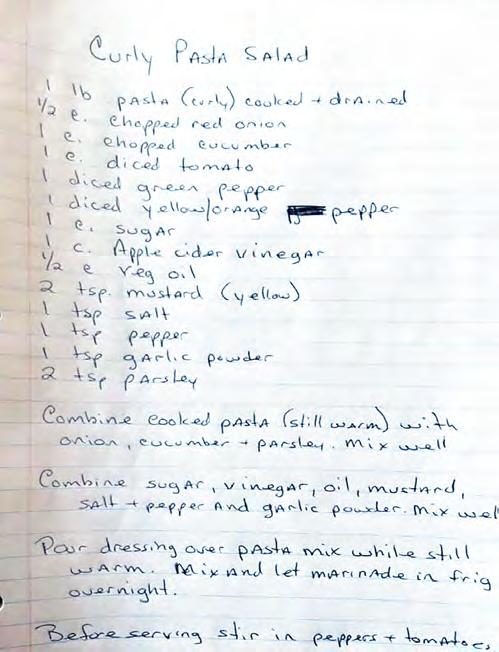 Curly Pasta Salad
1 lb pasta (curly) cooked + drained
1/2 c. chopped red onion
1 c. chopped cucumber
1 c. diced tomato
1 diced green pepper
1 diced yellow/orange pepper
1 c. sugar
1 c. Apple cider vinegar
1/2 c veg oil
2 tsp. mustard (yellow)
1 tsp salt
1 tsp pepper
1 tsp garlic powder
2 tsp parsley
Combine cooked pasta (still warm) with
onion, cucumber + parsley. Mix well
Combine sugar, vinegar, oil, mustard,
salt + pepper and garlic powder. Mix well
Pour dressing over pasta mix while still
warm. Mix and let marinade in frig
overnight.
Before serving stir in peppers + tomatoes